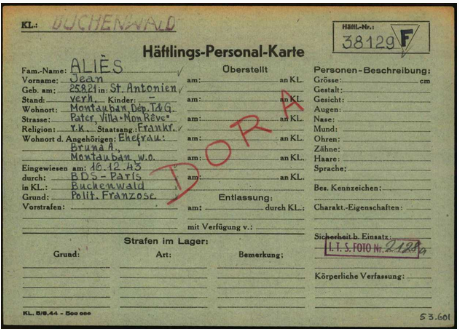 KL.: BUCHENWALD
Häftl.-Nr.:
38129 F
Häftlings-Personal-Karte
Fam.-Name: ALIÈS
Vorname: Jean
Geb. am: 25.8.21 in: St. Antonien
Stand: verh. Kinder: -
Wohnort: Montauban, Dep. T.d.G.
Strasse: Pater, Villa "Mon Rêve"
Religion: r.k. Staatsang.: Frankr.
Wohnort d. Angehörigen: Ehefrau:
Bruna A.,
Montauban w.o.
Eingewiesen am: 16.12.43
durch: BDS-Paris
in KL.: Buchenwald
Grund: Polit. Franzose
Vorstrafen:
Überstellt
am: an KL.
am: an KL.
am: an KL.
am: an KL.
am: an KL.
am: an KL.
DORA
Entlassung:
am: durch KL.:
mit Verfügung v.:
Personen-Beschreibung:
Grösse: cm
Gestalt:
Gesicht:
Augen:
Nase:
Mund:
Ohren:
Zähne:
Haare:
Sprache:
Bes. Kennzeichen:
Charakt.-Eigenschaften:
Sicherheit b. Einsatz:
I.T.S. FOTO Nr.
Körperliche Verfassung:
Strafen im Lager:
Grund: Art: Bemerkung:
KL. 5/8.44 - 500 000
53.601